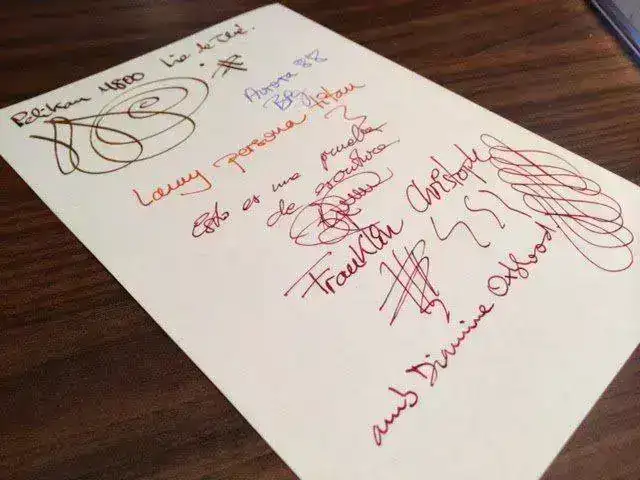 Pelikan M800 Lie de Thé.
Aurora 88
Lamy persona titan
Esto es una prueba
de escritura
Franklin Christoph
amb Diamine Oxblood